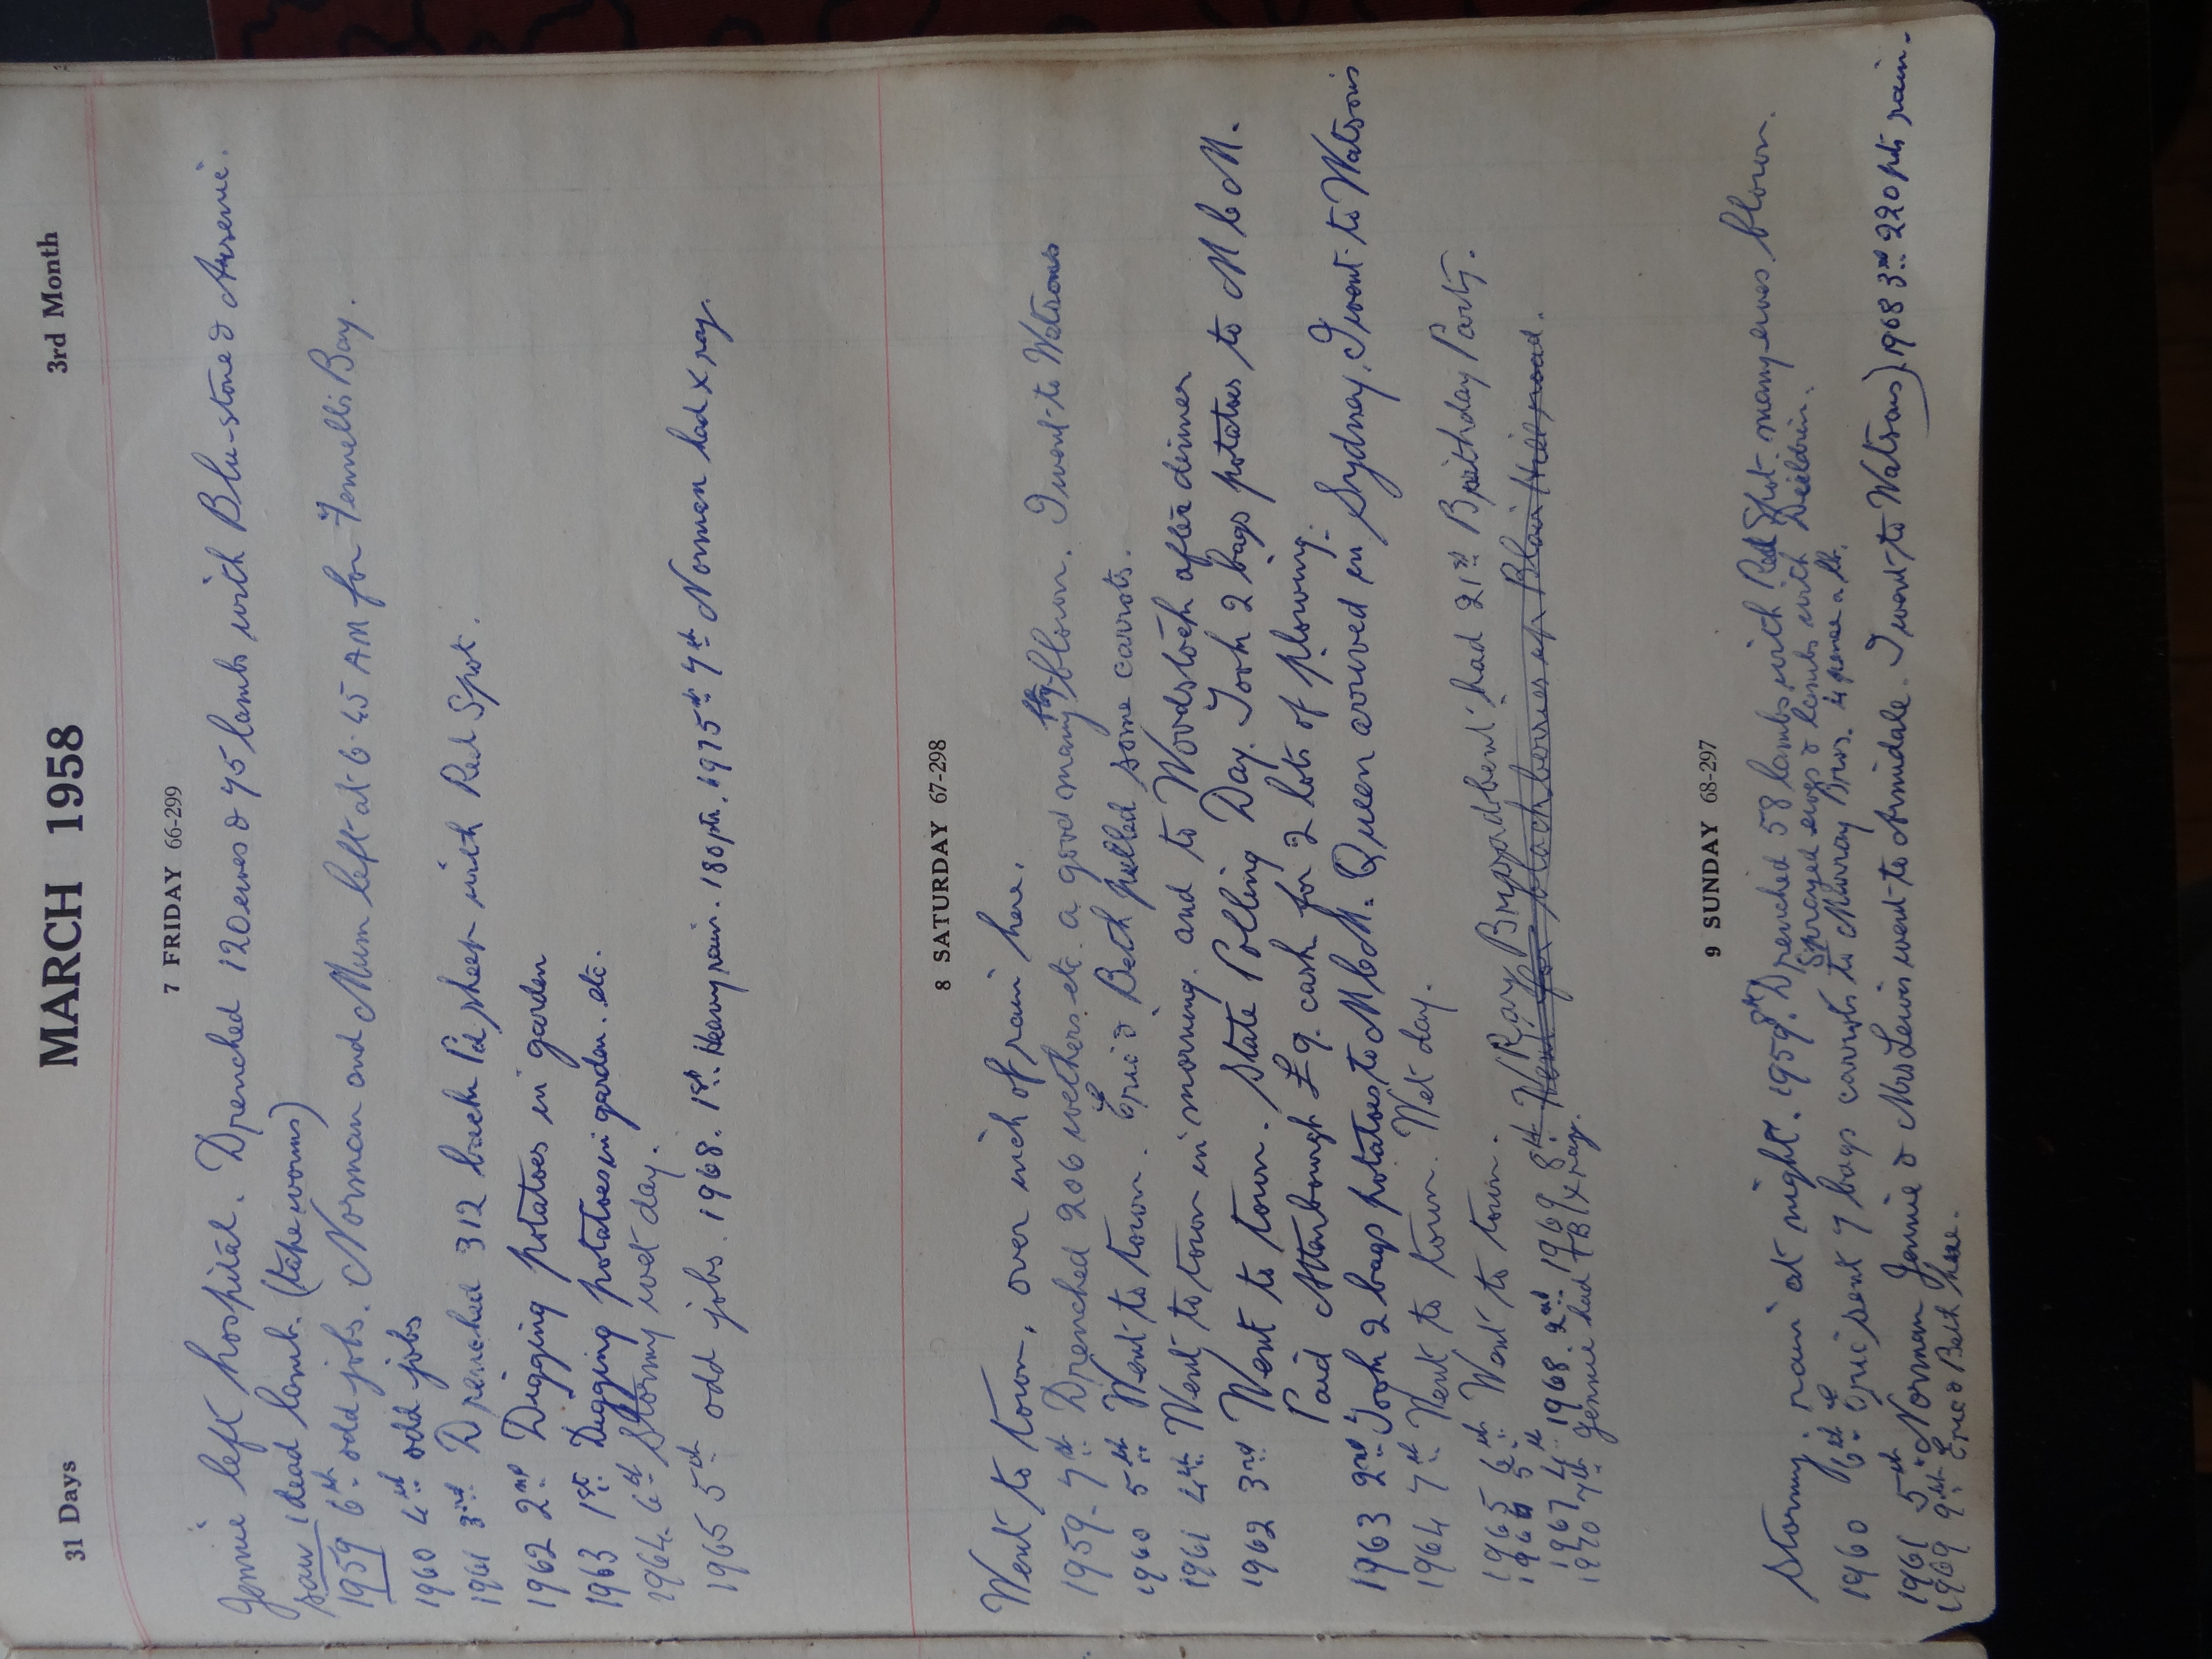 31 Days MARCH 1958 3rd Month
7 FRIDAY 66-299
Jennie left hospital. Drenched 120 ewes & 75 lambs with Blu-stone & Arsenic.
saw 1 dead lamb. (tape worms)
1959 6th odd jobs. Norman and Mum left at 6.45 AM for Fennells Bay.
1960 4th odd jobs
1961 3rd Drenched 312 back Pd. sheep with Red Spot.
1962 2nd Digging potatoes in garden
1963 1st Digging potatoes in garden. etc.
1964. 6th Stormy wet day.
1965 5th odd jobs. 1968. 1st Heavy rain. 180 pts. 1975th 7th Norman had X ray.
8 SATURDAY 67-298
Went to town, over inch of rain here.
1959- 7th Drenched 206 wethers. etc. a good many fly blown. I went to Watsons
1960 5th Went to town. Eric & Beth pulled some carrots.
1961 4th Went to town in morning. and to Woodstock after dinner
1962 3rd Went to town. State Polling Day. Took 2 bags potatoes to M b M.
Paid Attenborough £9. cash for 2 lots of plowing.
1963 2nd Took 2 bags potatoes to M b M. Queen arrived in Sydney. I went to Watsons
1964 7th Went to town. Wet day.
1965 6th Went to town. Ray had 21st Birthday Party.
1966 5th
1967 4th 1968. 2nd 1969 8th Went for blackberries up Blair Hill road.
1970 7th Jennie had TB X ray.
9 SUNDAY 68-297
Stormy. rain at night. 1959. 8th Drenched 58 lambs with Red Spot. many ewes blown.
Sprayed ewes & lambs with Dieldrin.
1960 6th Eric sent 7 bags carrots to Murray Bros. 4 pence a lb.
1961 5th Norman Jennie & Mrs Lewis went to Armidale. I went to Watsons). 1968 3rd 220 pts rain.
1969 9th Eric & Beth here.